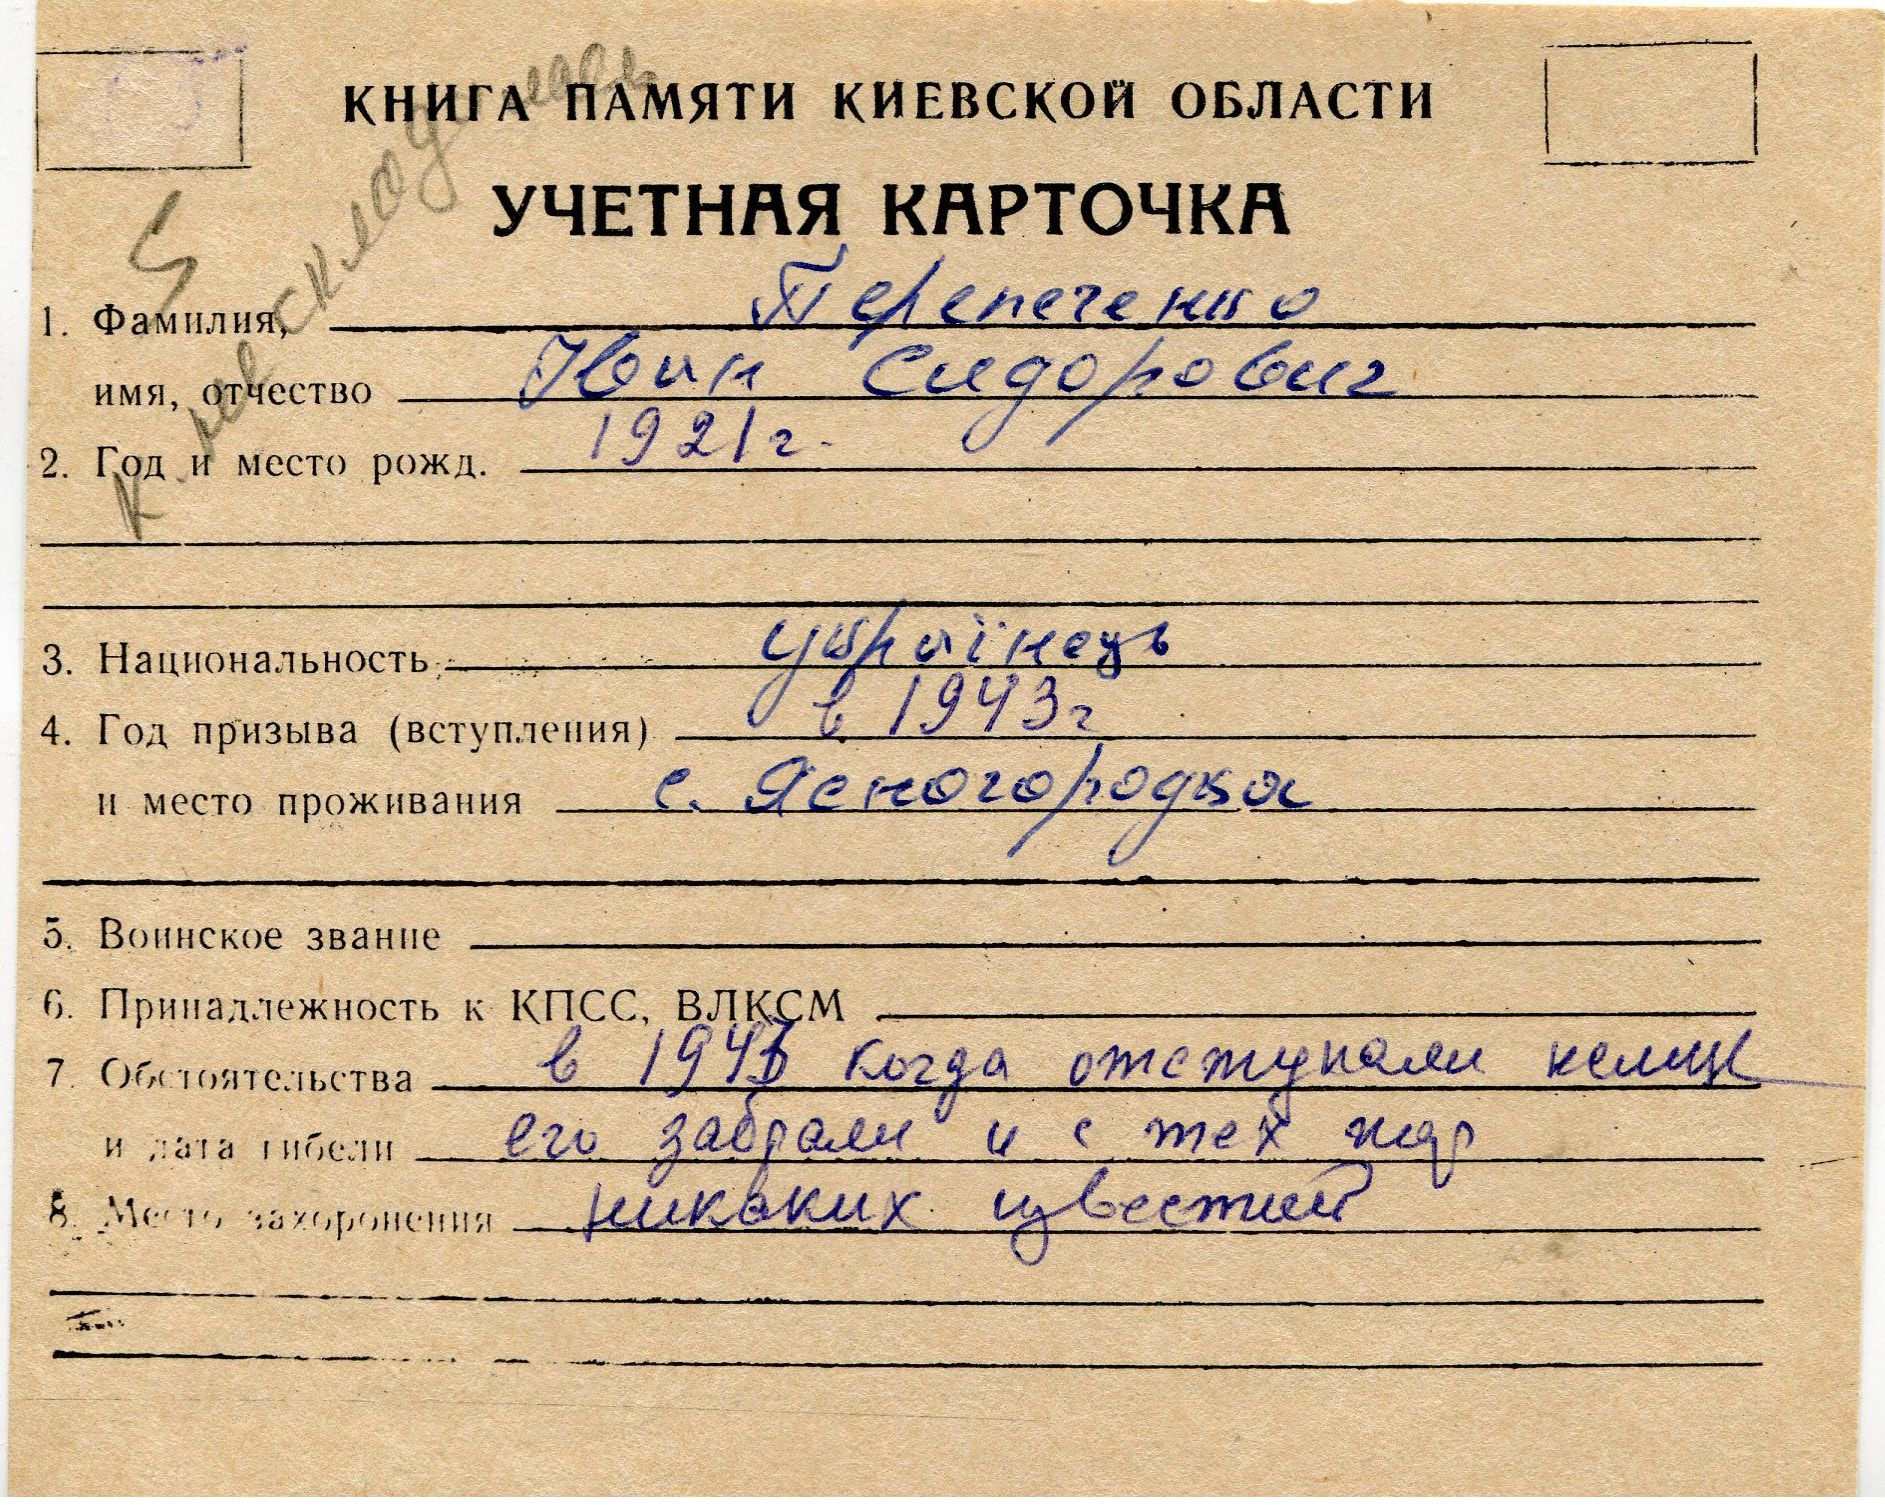 КНИГА ПАМЯТИ КИЕВСКОЙ ОБЛАСТИ
УЧЕТНАЯ КАРТОЧКА
1. Фамилия, Перепеченко
имя, отчество Іван Сидорович
2. Год и место рожд. 1921 г.
3. Национальность українець
4. Год призыва (вступления) в 1943 г
и место проживания с. Ясногородка
5. Воинское звание
6. Принадлежность к КПСС, ВЛКСМ
7. Обстоятельства в 1943 когда отступали немцы
и дата гибели его забрали и с тех пор
8. Место захоронения никаких известий